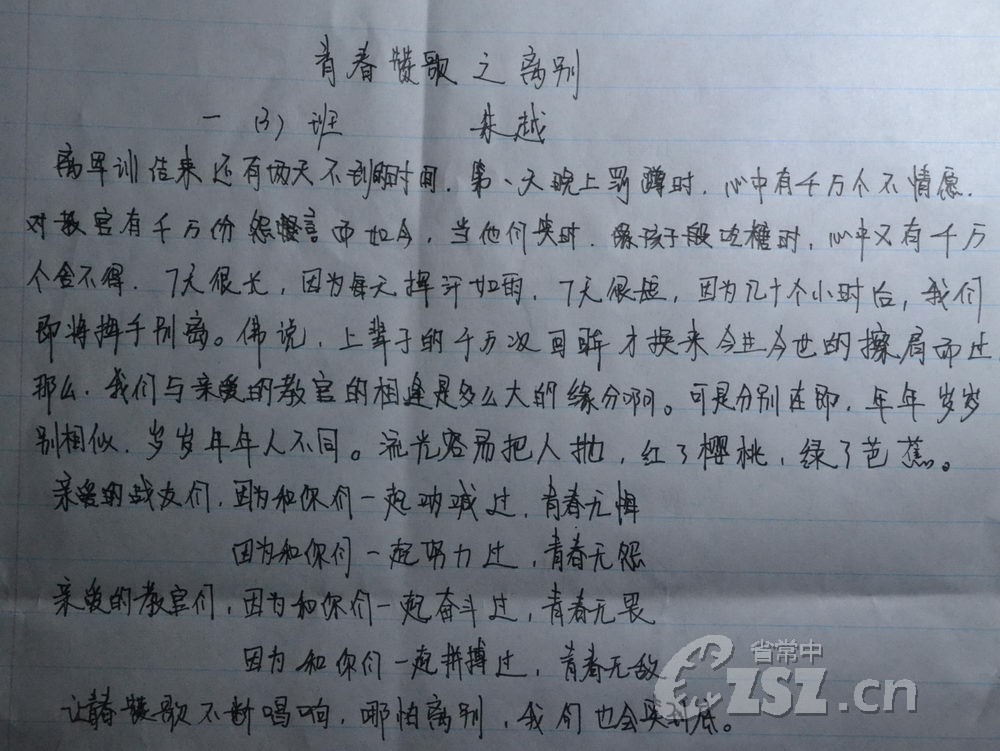 青春赞歌之离别
一（3）班 朱越
离军训结束还有两天不到的时间。第一天晚上罚蹲时，心中有千万个不情愿，
对教官有千万份怨言而如今，当他们笑时，像孩子般吃糖时，心中又有千万
个舍不得。7天很长，因为每天挥汗如雨，7天很短，因为几十个小时后，我们
即将挥手别离。佛说，上辈子的千万次回眸才换来今生今世的擦肩而过
那么，我们与亲爱的教官的相逢是多么大的缘分啊。可是分别在即，年年岁岁
别相似，岁岁年年人不同。流光容易把人抛，红了樱桃，绿了芭蕉。
亲爱的战友们，因为和你们一起呐喊过，青春无悔
因为和你们一起努力过，青春无怨
亲爱的教官们，因为和你们一起奋斗过，青春无畏
因为和你们一起拼搏过，青春无敌
让青春赞歌不断唱响，哪怕离别，我们也会笑到底。
省常中
CZSZ.cn